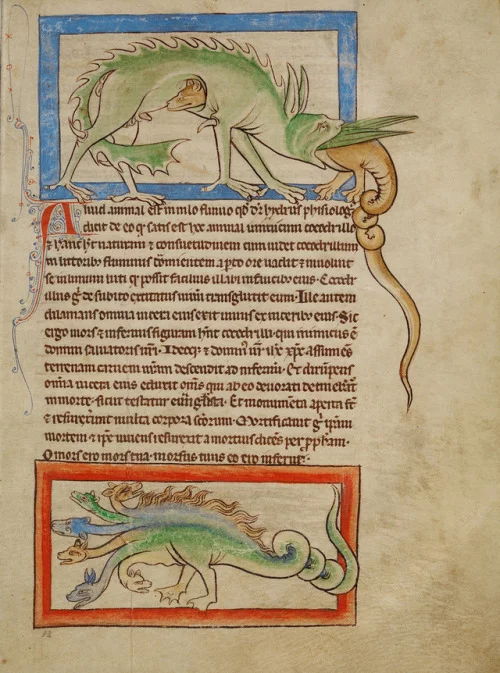 Aliud animal est in nilo fluuio qđ dr̄ hydrus phisiologꝰ
dicit de eo q̄ satis est hoc animal inimicum cocodrillo
& hanc hr̄ naturam & consuetudinem cum uidet cocodrillum
in littoribꝫ fluminis dormientem apto ore uadit & inuoluit
se in limum luti q̊ possit facilius illabi in faucibꝫ eius. Cocodr
illus g̊ de subito excitatus uiuum transglutit eum. Ille autem
dilanians omnia uicera eius exit uiuus ex uiceribꝫ eius. Sic
ergo mors & infernus figuram hn̄t cocodrilli. qui inimicus ē
domini saluatoris nr̄i. Ideoqꝫ & dominꝰ nr̄ ih̄c xp̄c assumēs
terrenam carnem nr̄am descendit ad infernum. Et dirūpens
om̄ia uicera eius eduxit om̄s qui ab eo deuorati detinebāt̄
in morte. sicut testatur euuglista. Et monumēta aperta st̄
& resurexerunt multa corpora sc̄orum. Mortificauit g̊ ipsam
mortem & ip̄e uiuens resurexit a mortuis dicēs per ꝓph̄am.
O mors ero mors tua. morsus tuus ero inferne.